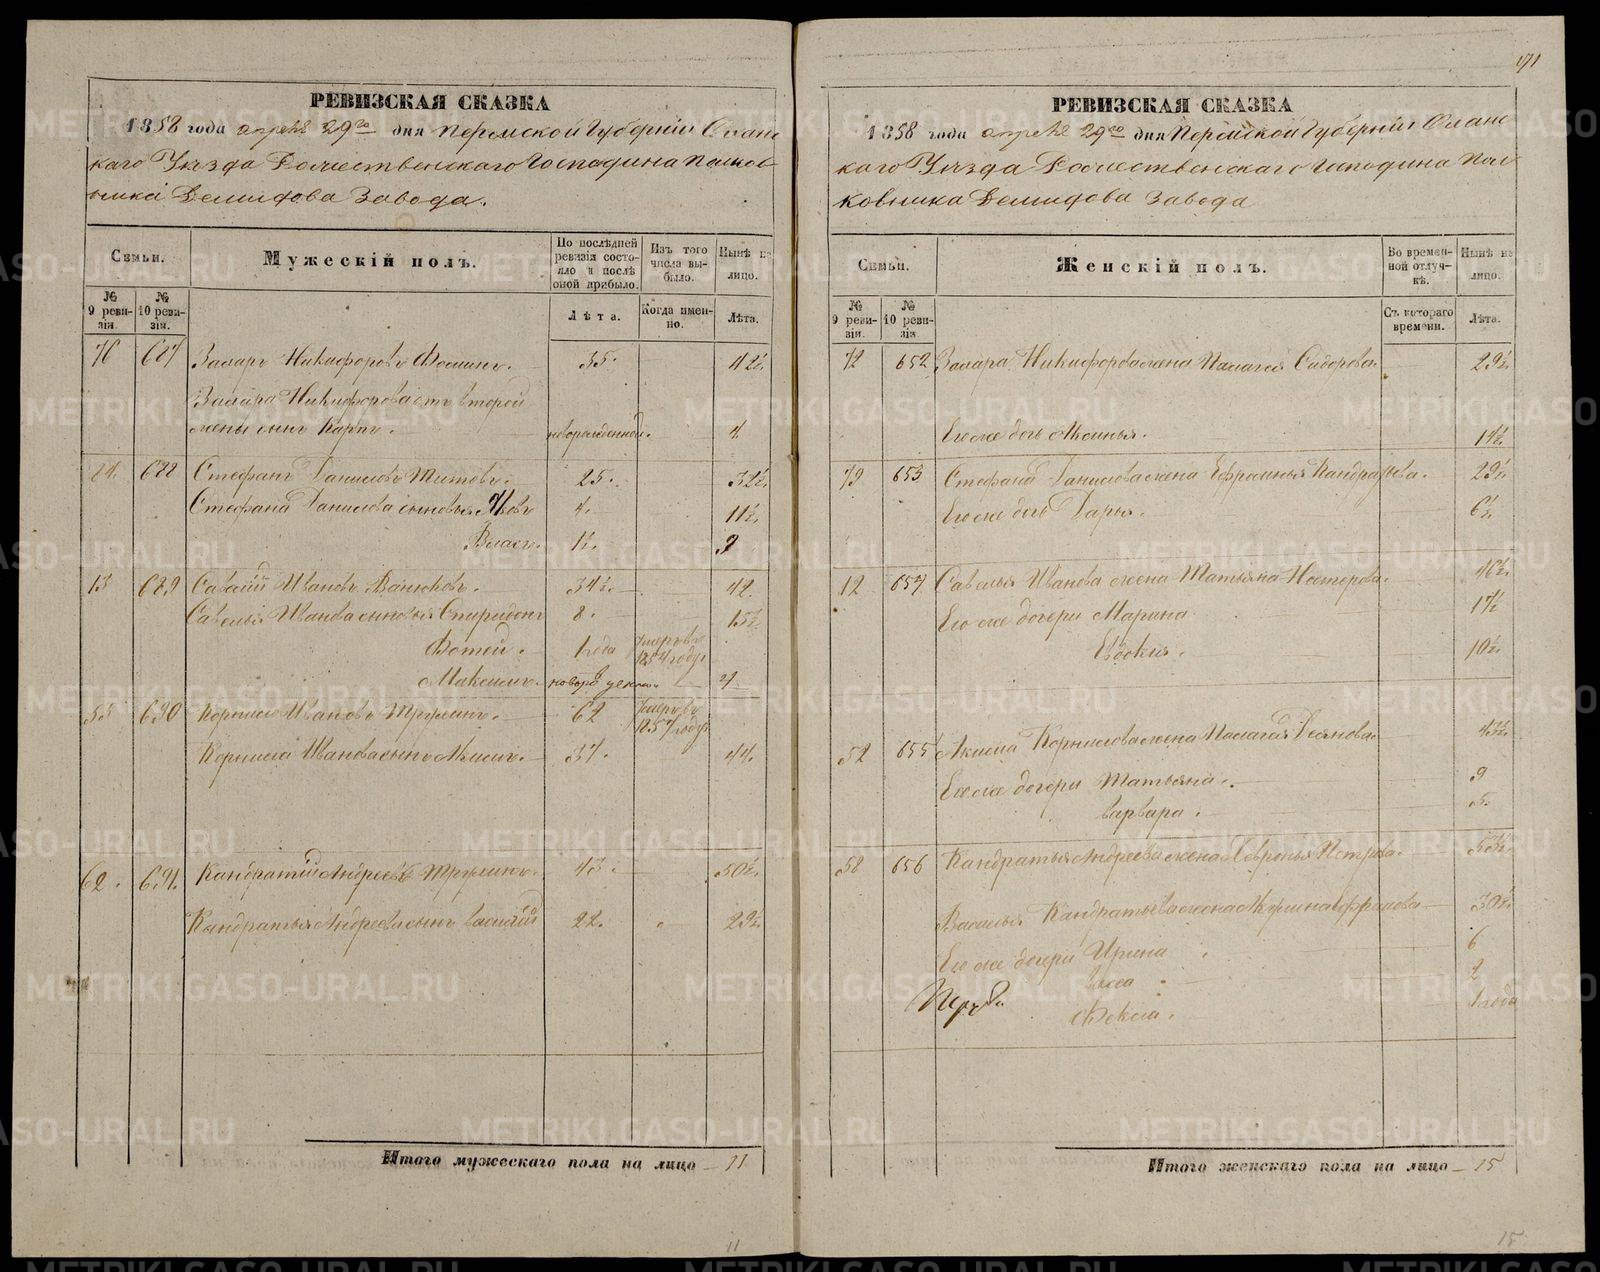 171
РЕВИЗСКАЯ СКАЗКА
1858 года апреля 29го дня Пермской Губернии Оханс
каго Уезда Рожественскаго Господина Полков
ника Демидова Завода.
Семьи.
Мужескій полъ.
По послѣдней ревизіи состояло и послѣ оной прибыло.
Изъ того числа выбыло.
Нынѣ на лицо.
№ 9 ревизіи.
№ 10 ревизіи.
Лѣта.
Когда именно.
Лѣта.
76 687 Захаръ Никифоровъ 35. 42½.
Захара Никифорова отъ второй
жены сынъ Карпъ. новорожденной. 4.
688 Стефанъ Даниловъ Титовъ. 25. 32½.
Стефана Данилова сыновья Яковъ 4. 11½.
Власъ. 1½. 9
13 689 Савелій Ивановъ 34½. 42.
Савелья Иванова сыновья Спиридонъ 8. 15½.
Фотей. 1 года Умеръ въ 1854 году
Максимъ. новорожден. 4
53 690 Корнило Ивановъ Трушинъ. 62 Умеръ въ 1857 году
Корнила Иванова сынъ Акимъ. 37. 44.
62. 691. Кандратій Андреевъ Трушинъ. 43. 50½.
Кандратья Андреева сынъ Василій 22. 29½.
Итого мужескаго пола на лицо 11
11
РЕВИЗСКАЯ СКАЗКА
1858 года апреля 29го дня Пермской Губернии Оханс
каго Уезда Рожественскаго Господина Пол
ковника Демидова Завода
Семьи.
Женскій полъ.
Во временной отлучкѣ.
Нынѣ на лицо.
№ 9 ревизіи.
№ 10 ревизіи
Съ котораго времени.
Лѣта.
72 652 Захара Никифорова жена Палагея Сидорова 29½.
Его же дочь Аксинья. 14½.
79 653 Стефана Данилова жена Ефросинья Кандратьева. 29½.
Его же дочь Дарья. 6½.
12 654 Савелья Иванова жена Татьяна Несторова. 46½.
Его же дочери Марина 17½
Евдокия. 10½.
52 655 Акима Корнилова жена Палагея 43½.
Его же дочери Татьяна. 9
Варвара. 5.
58 656 Кандратья Андреева жена Петрова. 53½.
Василья Кандратьева жена 30½.
Его же дочери Ирина 6
Васса 2
Фекла. 1 года
Итого женскаго пола на лицо 15
15
METRIKI.GASO-URAL.RU